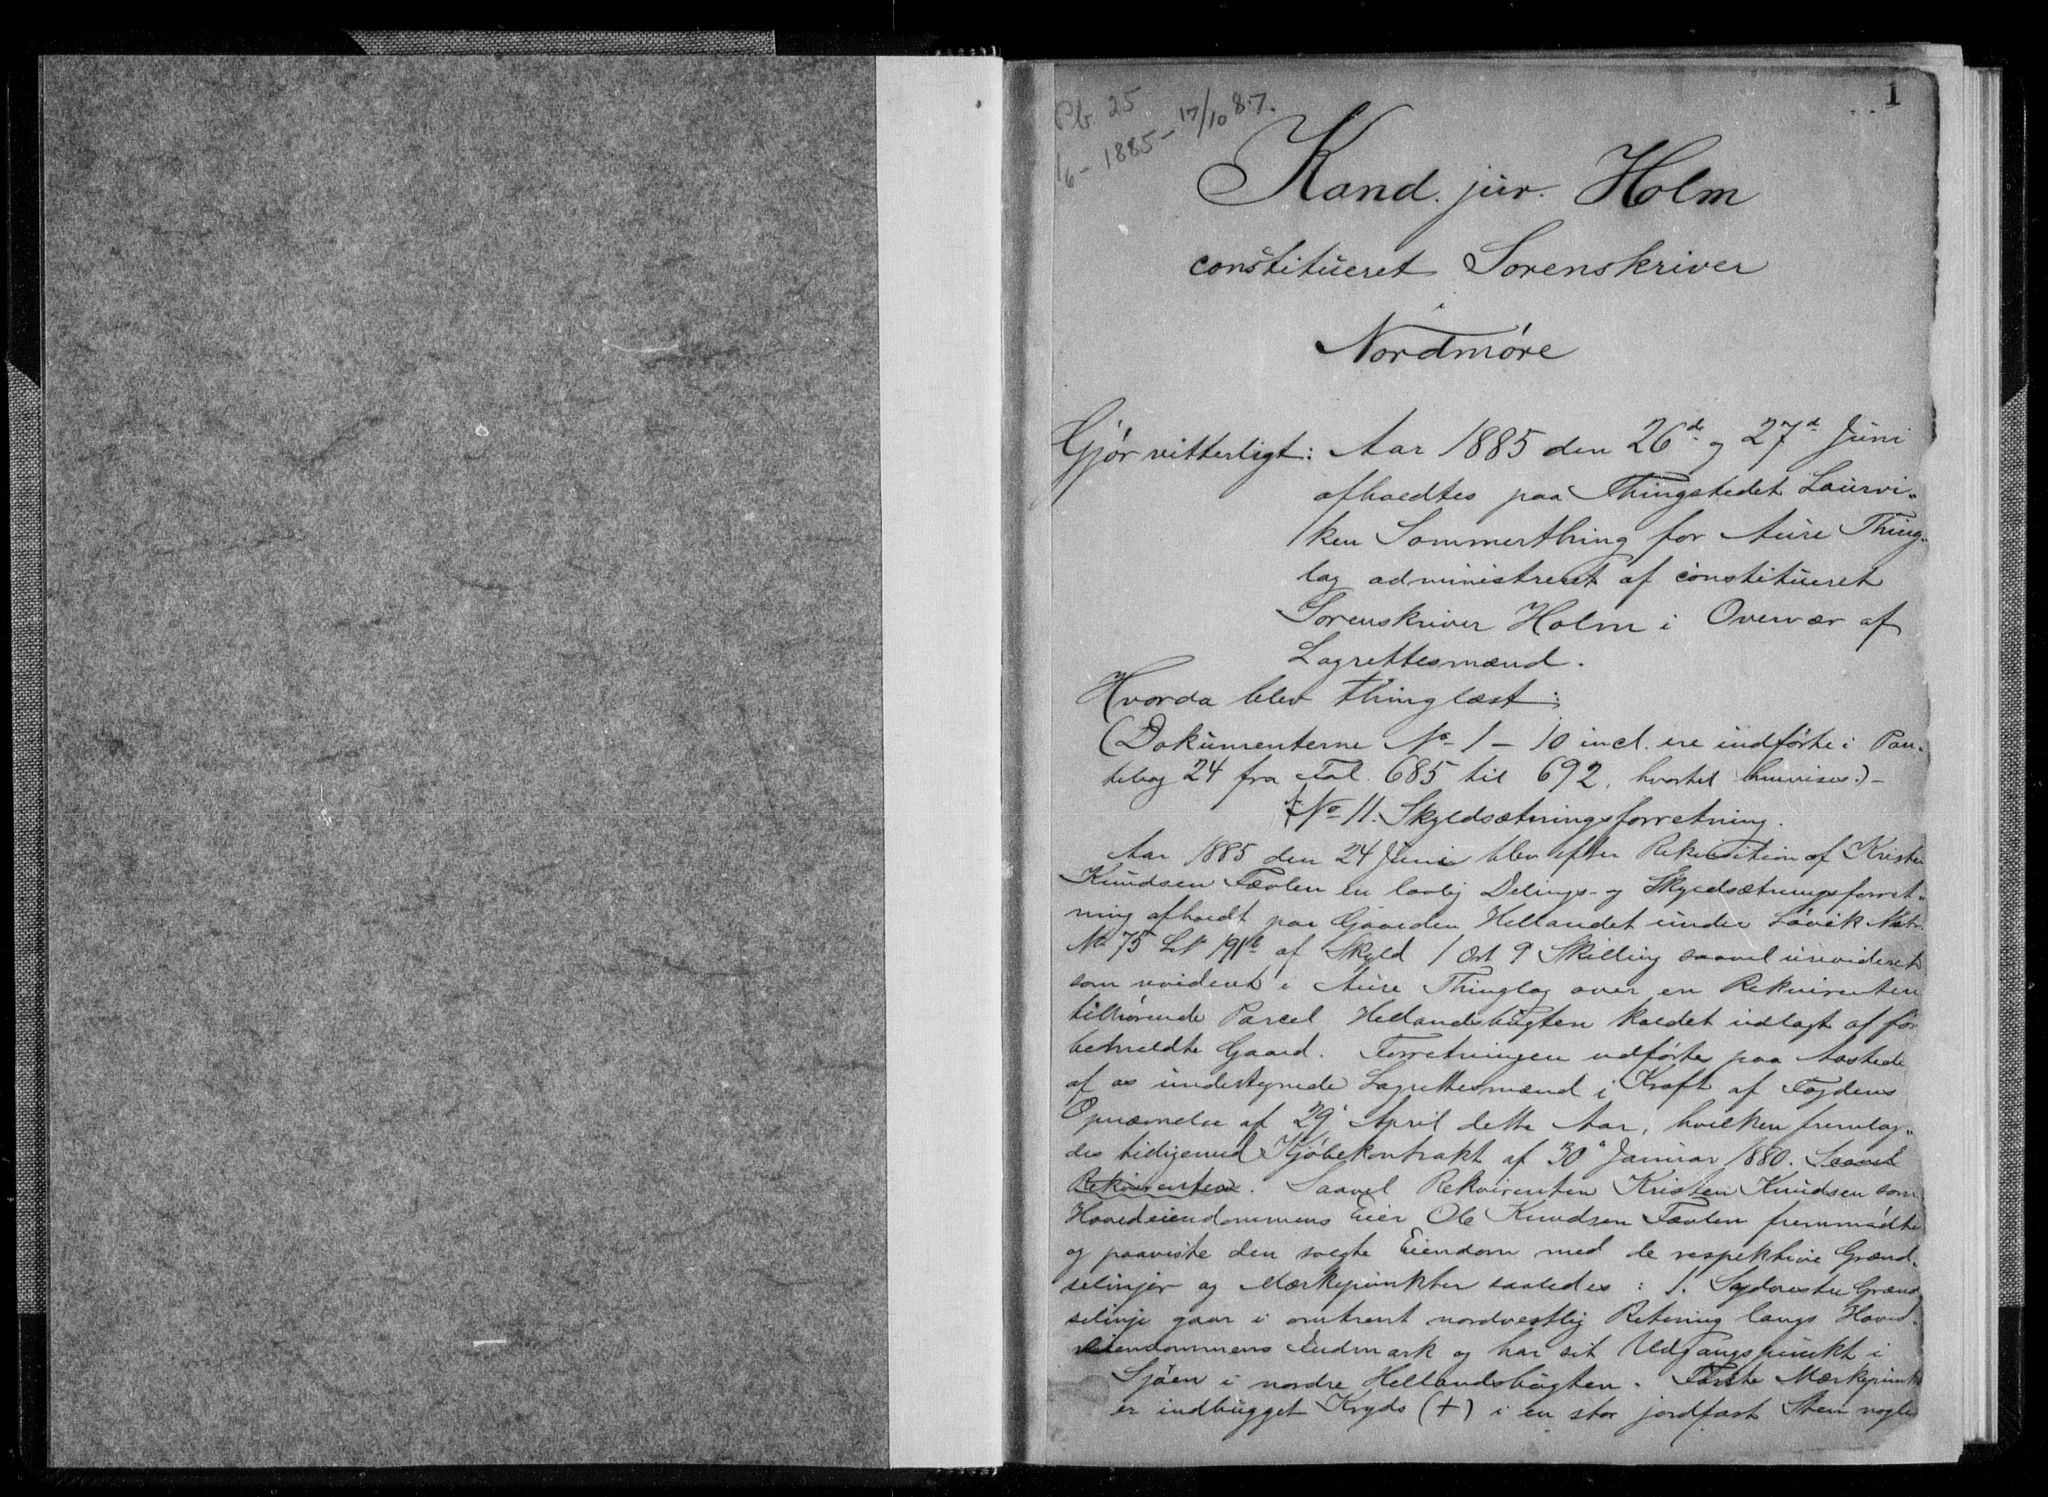 1
Pb. 25
1/6 - 1885 - 17/10 87.
Kand. jur. Holm
constitueret Sorenskriver
i
Nordmøre
Gjør vitterligt: Aar 1885 den 26de og 27d Juni
afholdtes paa Thingstedet Laurvi-
ken Sommerthing for Aure Thing-
lag administreret af constitueret
Sorenskriver Holm i Overvær af
Lagrettesmænd.
Hvorda blev thinglæst:
(Dokumenterne No 1 - 10 incl. ere indførte i Pan-
tebog 24 fra Fol. 685 til 692, hvortil henvises.) -
No 11. Skyldsætningsforretning.
Aar 1885 den 24 Juni blev efter Rekvisition af Kristen
Knudsen Tævlen en lovlig Delings- og Skyldsætningsforret-
ning afholdt paa Gaarden Hellandet under Løvik Matr.
No 75 LN 191b af Skyld 1 Ort 9 Skilling saavel urevideret
som revideret i Aure Thinglag over en Rekvirenten
tilhørende Parcel Hellandsbugten kaldet udlagt af for
bemeldte Gaard. Forretningen udførtes paa Aastede
af os undertegnede Lagrettesmænd i Kraft af Fogdens
Opnævnelse af 29' April dette Aar, hvilken fremlag-
des tidigemed Kjøbekontrakt af 30' Januar 1880. Saavel
Rekvirenten. Saavel Rekvirenten Kristen Knudsen som
Hovedeiendommens Eier Ole Knudsen Tævlen fremmødte
og paaviste den solgte Eiendom med de respektive Grænd-
selinjer og Mærkepunkter saaledes: 1. Sydvestre Grænd
selinje gaar i omtrent nordvestlig Retning langs Hoved-
eiendommens Indmark og har sit Udgangspunkt i
Sjøen i nordre Hellandsbugten. Første Mærkepunkt
er indhugget Kryds (+) i en stor jordfast Sten nogle